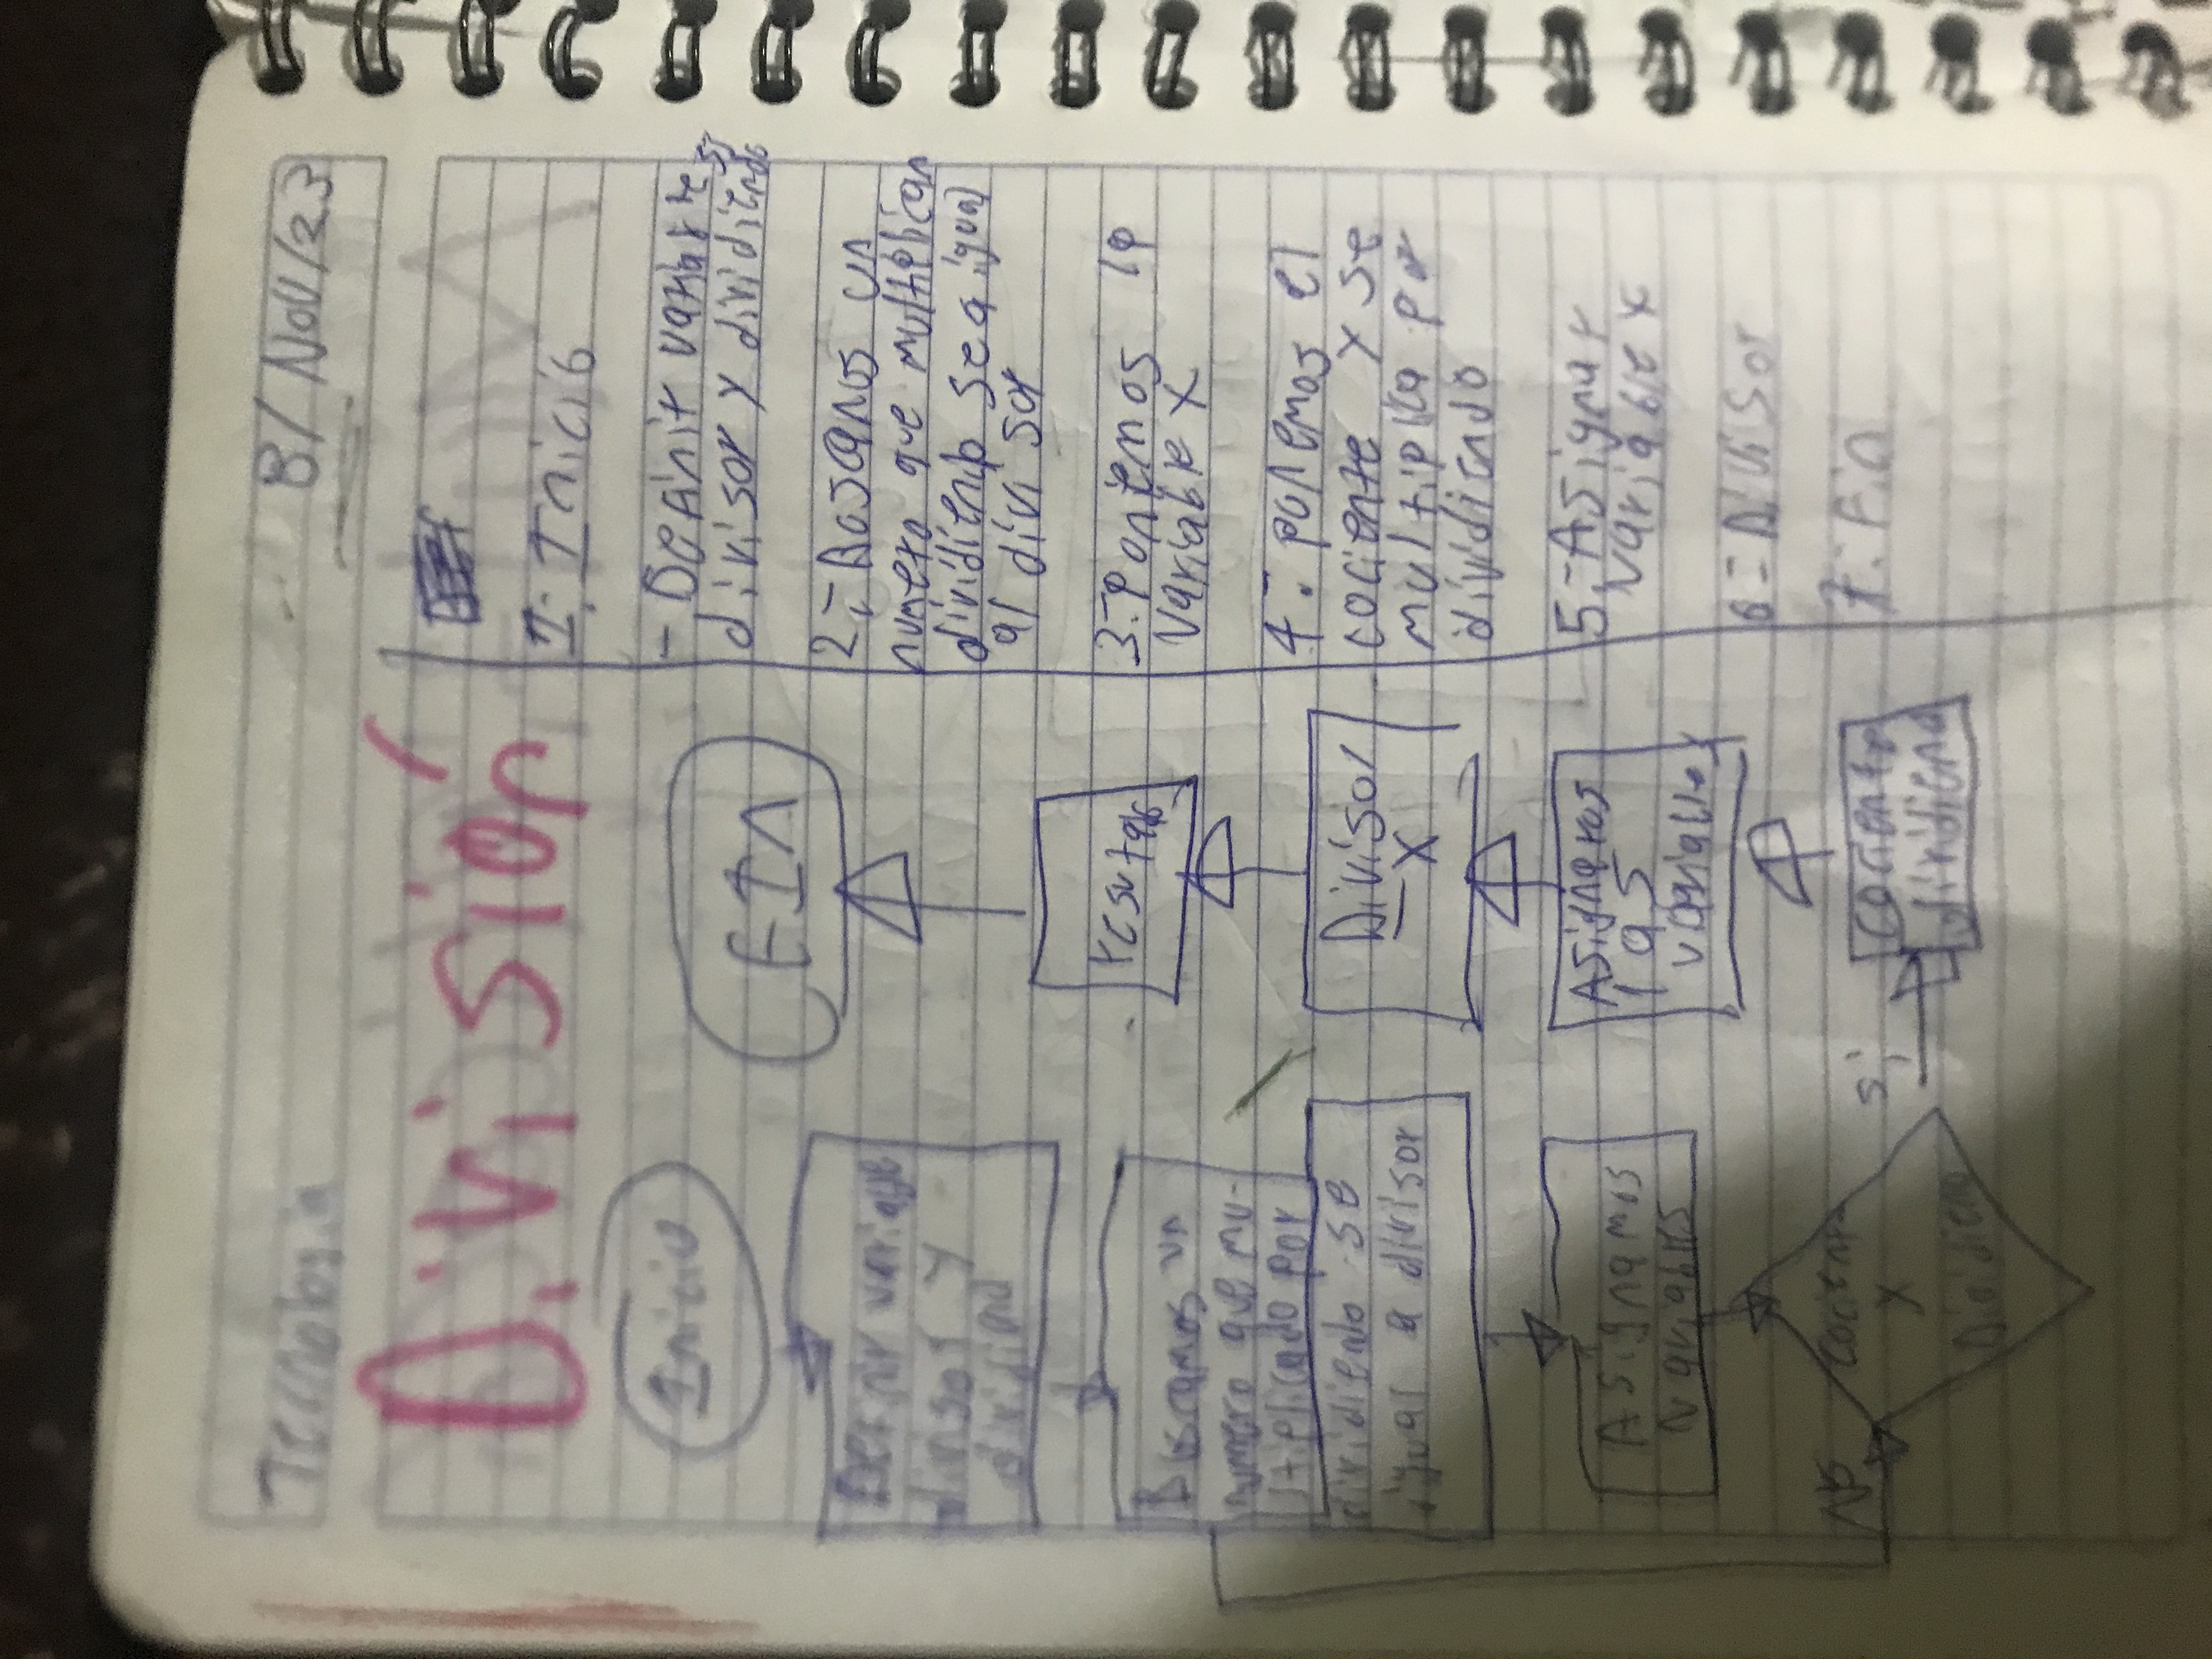 Tecnologia
8/Nov/23
División
Inicio
Definir variable
divisor y
dividiend
Buscamos un
numero que mu-
ltiplicado por
dividiendo se
igual a divisor
Asignamos
variables
Cociente
X
Dividiend
No
si
Cociente
dividiendo
Asignamos
las
variables
Divisor
-X
resultado
FIN
1.- Inicio
- Definir variable
divisor y dividiendo
2.- Buscamos un
numero que multiplican
dividiendo sea igual
al divisor
3.- Ponemos la
variable X
4.- ponemos el
cociente y se
multiplica por
dividiendo
5.- Asignar
variable X
6.- Divisor
7.- Fin